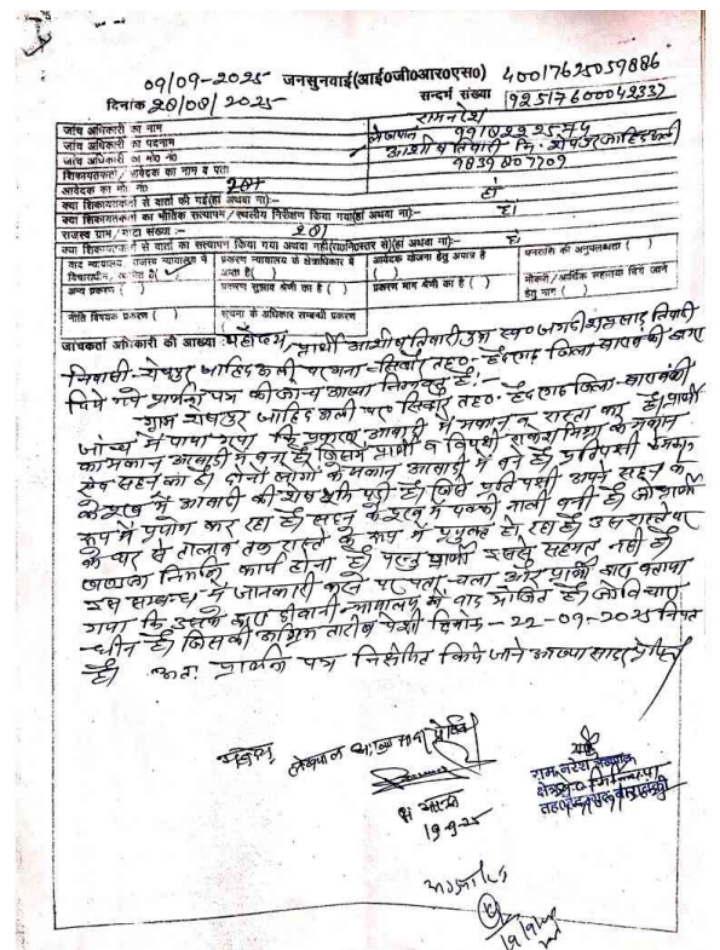 09/09-2025 जनसुनवाई(आई०जी०आर०एस०) 40017625059886
दिनांक 28/08/2025 सन्दर्भ संख्या 92517600042337
जांच अधिकारी का नाम रामनरेश
जांच अधिकारी का पदनाम लेखपाल
जांच अधिकारी का मो० नं०
शिकायतकर्ता/आवेदक का नाम व पता आशीष तिवारी नि. शेखपुर जाहिद अली
आवेदक का मो० नं० 9839807709
क्या शिकायतकर्ता से वार्ता की गई(हां अथवा ना):- हां
क्या शिकायतकर्ता का भौतिक सत्यापन/स्थलीय निरीक्षण किया गया(हां अथवा ना):- हां
राजस्व ग्राम/गाटा संख्या :-
क्या शिकायतकर्ता से वार्ता का सत्यापन किया गया अथवा नहीं (हां अथवा ना):- हां
वाद न्यायालय राजस्व न्यायालय में विचाराधीन प्रकरण न्यायालय के क्षेत्राधिकार में आता है( ) आवेदक योजना हेतु अपात्र है ( ) धनराशि की अनुपलब्धता ( )
अन्य प्रकरण ( ) प्रकरण सुझाव श्रेणी का है ( ) प्रकरण मांग श्रेणी का है ( ) नौकरी/आर्थिक सहायता दिये जाने हेतु मांग ( )
नीति विषयक प्रकरण ( ) सूचना के अधिकार सम्बन्धी प्रकरण ( )
जांचकर्ता अधिकारी की आख्या :- महोदय, प्रार्थी आशीष तिवारी पुत्र स्व० जगदीश प्रसाद तिवारी
निवासी- शेखपुर जाहिद अली परगना - सिद्धौर तह०- हैदरगढ़ जिला बाराबंकी द्वारा
दिये गये प्रार्थना पत्र की जांच आख्या निम्नवत् है:-
ग्राम शेखपुर जाहिद अली पर० सिद्धौर तह०- हैदरगढ़ जिला- बाराबंकी
जांच में पाया गया कि प्रकरण आबादी में मकान व रास्ता का है। प्रार्थी
का मकान आबादी में बना है जिसमें प्रार्थी व विपक्षी राकेश मिश्रा के मकान
सहन का है। दोनों लोगों के मकान आबादी में बने है। प्रतिपक्षी के मकान
के पूरब में आबादी की शेष भूमि पड़ी है। जिसे प्रतिपक्षी अपने सहन के
रूप में प्रयोग कर रहा है। सहन के पूरब में पक्की नाली बनी है। जो प्रार्थी
के घर से तालाब तक रास्ते के रूप में प्रयुक्त हो रहा है। उस रास्ते पर
निर्माण कार्य होना है। परन्तु प्रार्थी इससे सहमत नहीं है।
इस सम्बन्ध में जानकारी करने पर पता चला और प्रार्थी द्वारा बताया
गया कि उसके द्वारा दीवानी न्यायालय में वाद योजित है। जो विचारा
-धीन है। जिसकी अग्रिम तारीख पेशी दिनांक - 22-09-2025 नियत
है। अतः प्रार्थना पत्र निक्षेपित किये जाने आख्या सादर प्रेषित
महोदय,
लेखपाल आख्या सादर प्रेषित
19-9-25
राम नरेश लेखपाल
19/9/25